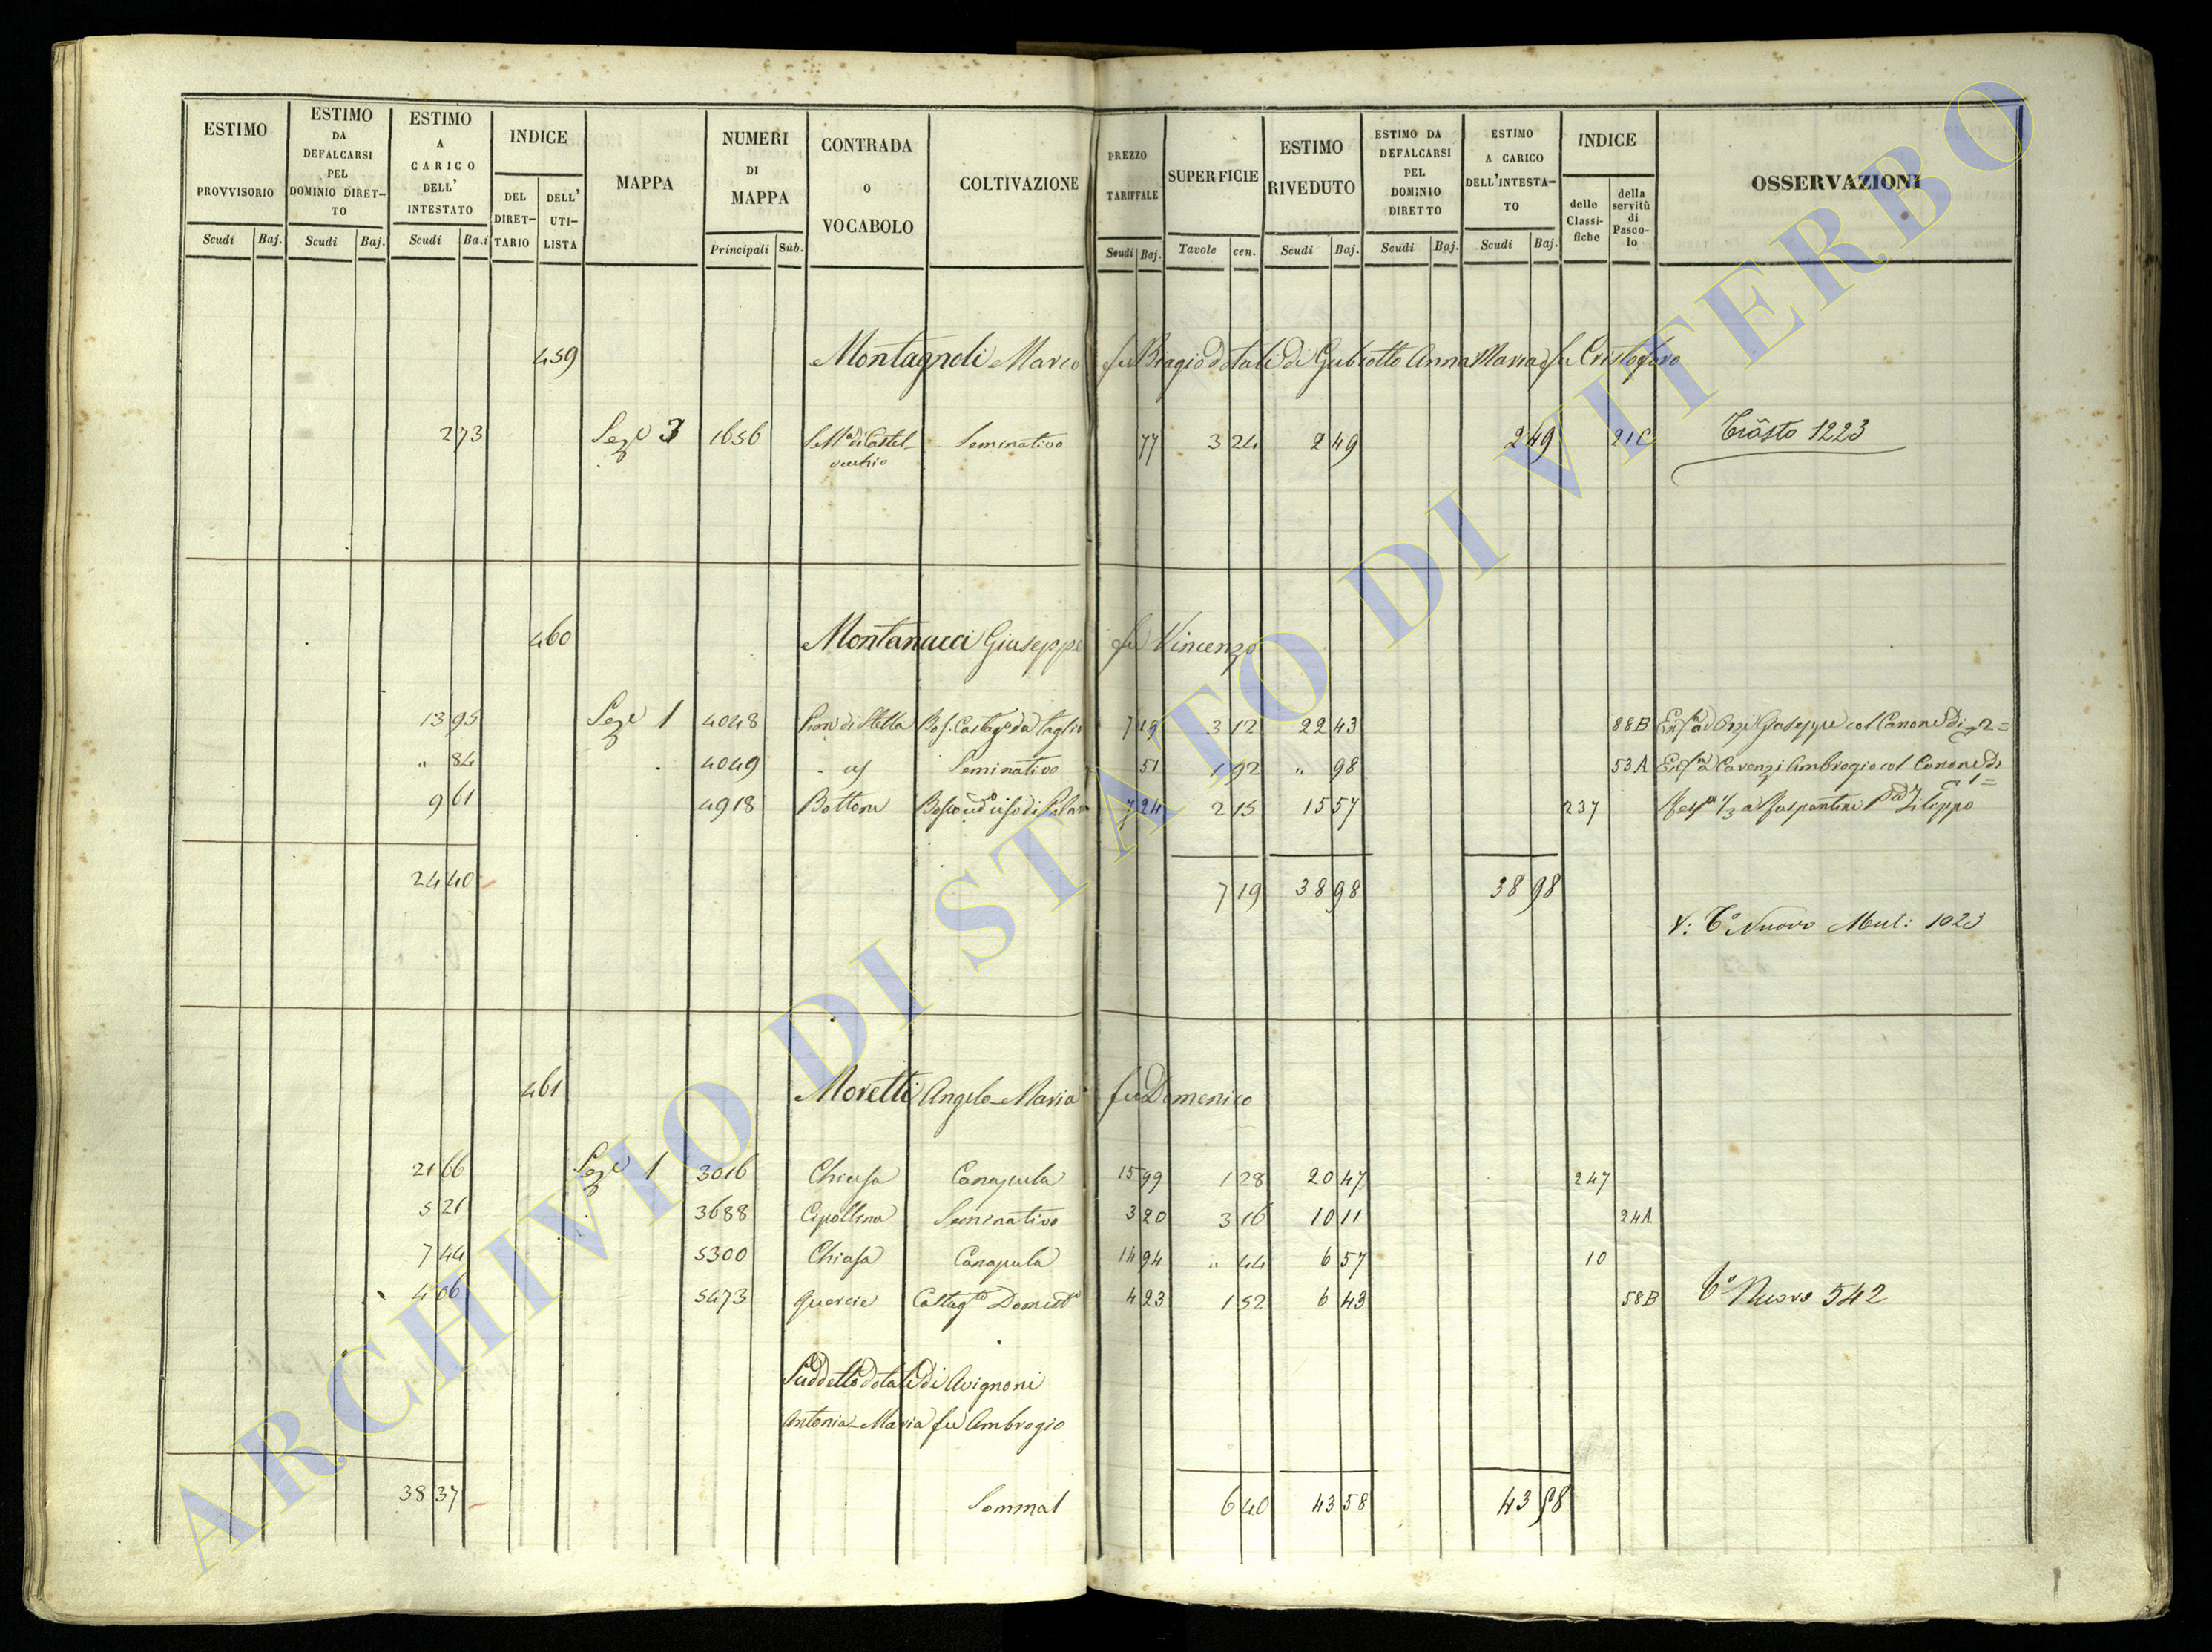 ESTIMO PROVVISORIO Scudi Baj. ESTIMO DA DEFALCARSI PEL DOMINIO DIRETTO Scudi Baj. ESTIMO A CARICO DELL' INTESTATO Scudi Ba.i INDICE DEL DIRETTARIO DELL' UTILISTA MAPPA NUMERI DI MAPPA Principali Sub. CONTRADA O VOCABOLO COLTIVAZIONE PREZZO TARIFFALE Scudi Baj. SUPERFICIE Tavole cen. ESTIMO RIVEDUTO Scudi Baj. ESTIMO DA DEFALCARSI PEL DOMINIO DIRETTO Scudi Baj. ESTIMO A CARICO DELL'INTESTATO Scudi Baj. INDICE delle Classifiche della servitù di Pascolo OSSERVAZIONI
459 Montagnoli Marco fu Biagio dotali di Gubiotto Anna Maria fu Cristoforo
2 73 Seze 3 1656 Castel- Seminativo 77 3 24 2 49 2 49 21C 1223
vecchio
460 Montanucci Giuseppe fu Vincenzo
13 95 Seze 1 4048 Pian di Stella Bos. Castag.o da taglio 7 19 3 12 22 43 88B Giuseppe col Canone di 2=
" 84 4049 Seminativo 51 1 92 " 98 53A Ambrogio col Canone di 1=
9 61 4918 Bottone 7 24 2 15 15 57 237 1/3 a Filippo
24 40 7 19 38 98 38 98
V: T.o Nuovo 1023
461 Moretti Angelo Maria fu Domenico
21 66 Seze 1 3016 Chiusa Canapula 15 99 1 28 20 47 247
5 21 3688 Cipollina Seminativo 3 20 3 16 10 11 24A
7 44 5300 Chiusa Canapula 14 94 " 44 6 57 10
4 06 5473 Quercie Castag.to Domest.o 4 23 1 52 6 43 58B T.o Nuovo 542
Suddetto dotali di Avignoni
Antonia Maria fu Ambrogio
38 37 Somma 6 40 43 58 43 58
ARCHIVIO DI STATO DI VITERBO